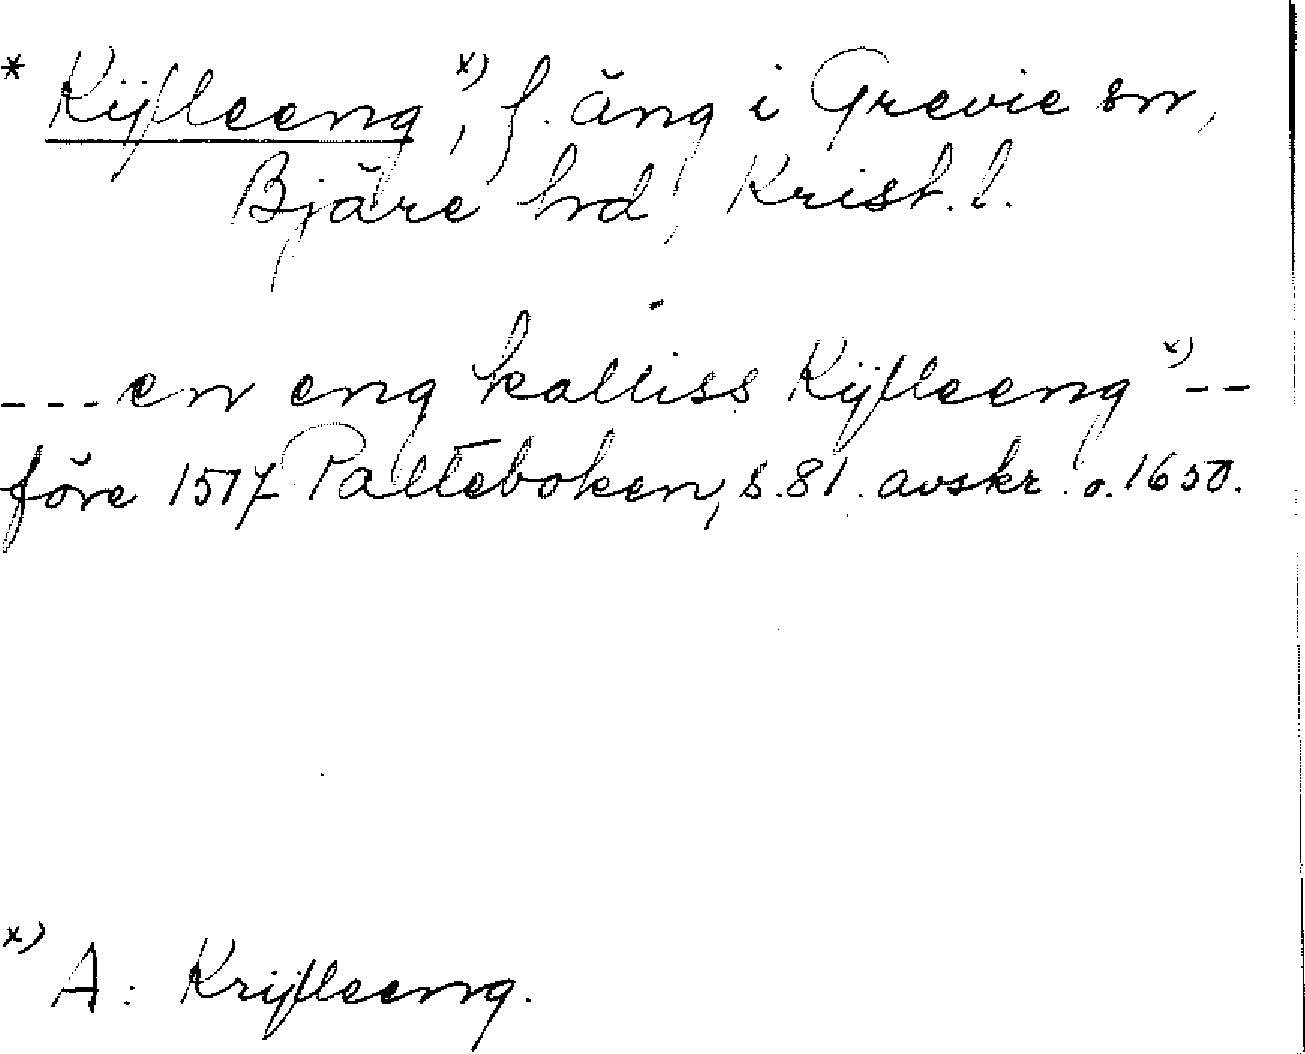 * Kÿfleeng x), f. äng i Grevie sn,
Bjäre hrd, Krist. l.
---en eng kalliss Kÿfleeng x)--
före 1517 Palteboken, s. 81. avskr. o. 1650.
x) A: Krijfleeng.